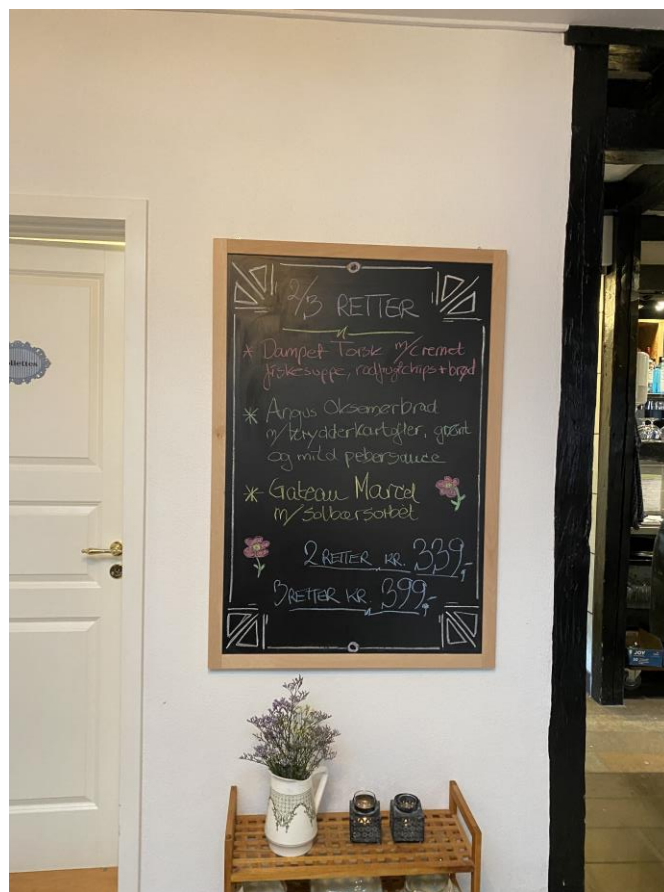 2/3 RETTER
* Dampet Torsk m/cremet
fiskesuppe, rodfrugtchips + brød
* Angus Oksemørbrad
m/krydderkartofler, grønt
og mild pebersauce
* Gateau Marcel
m/ solbærsorbèt
2 RETTER KR. 339,-
3 RETTER KR. 399,-